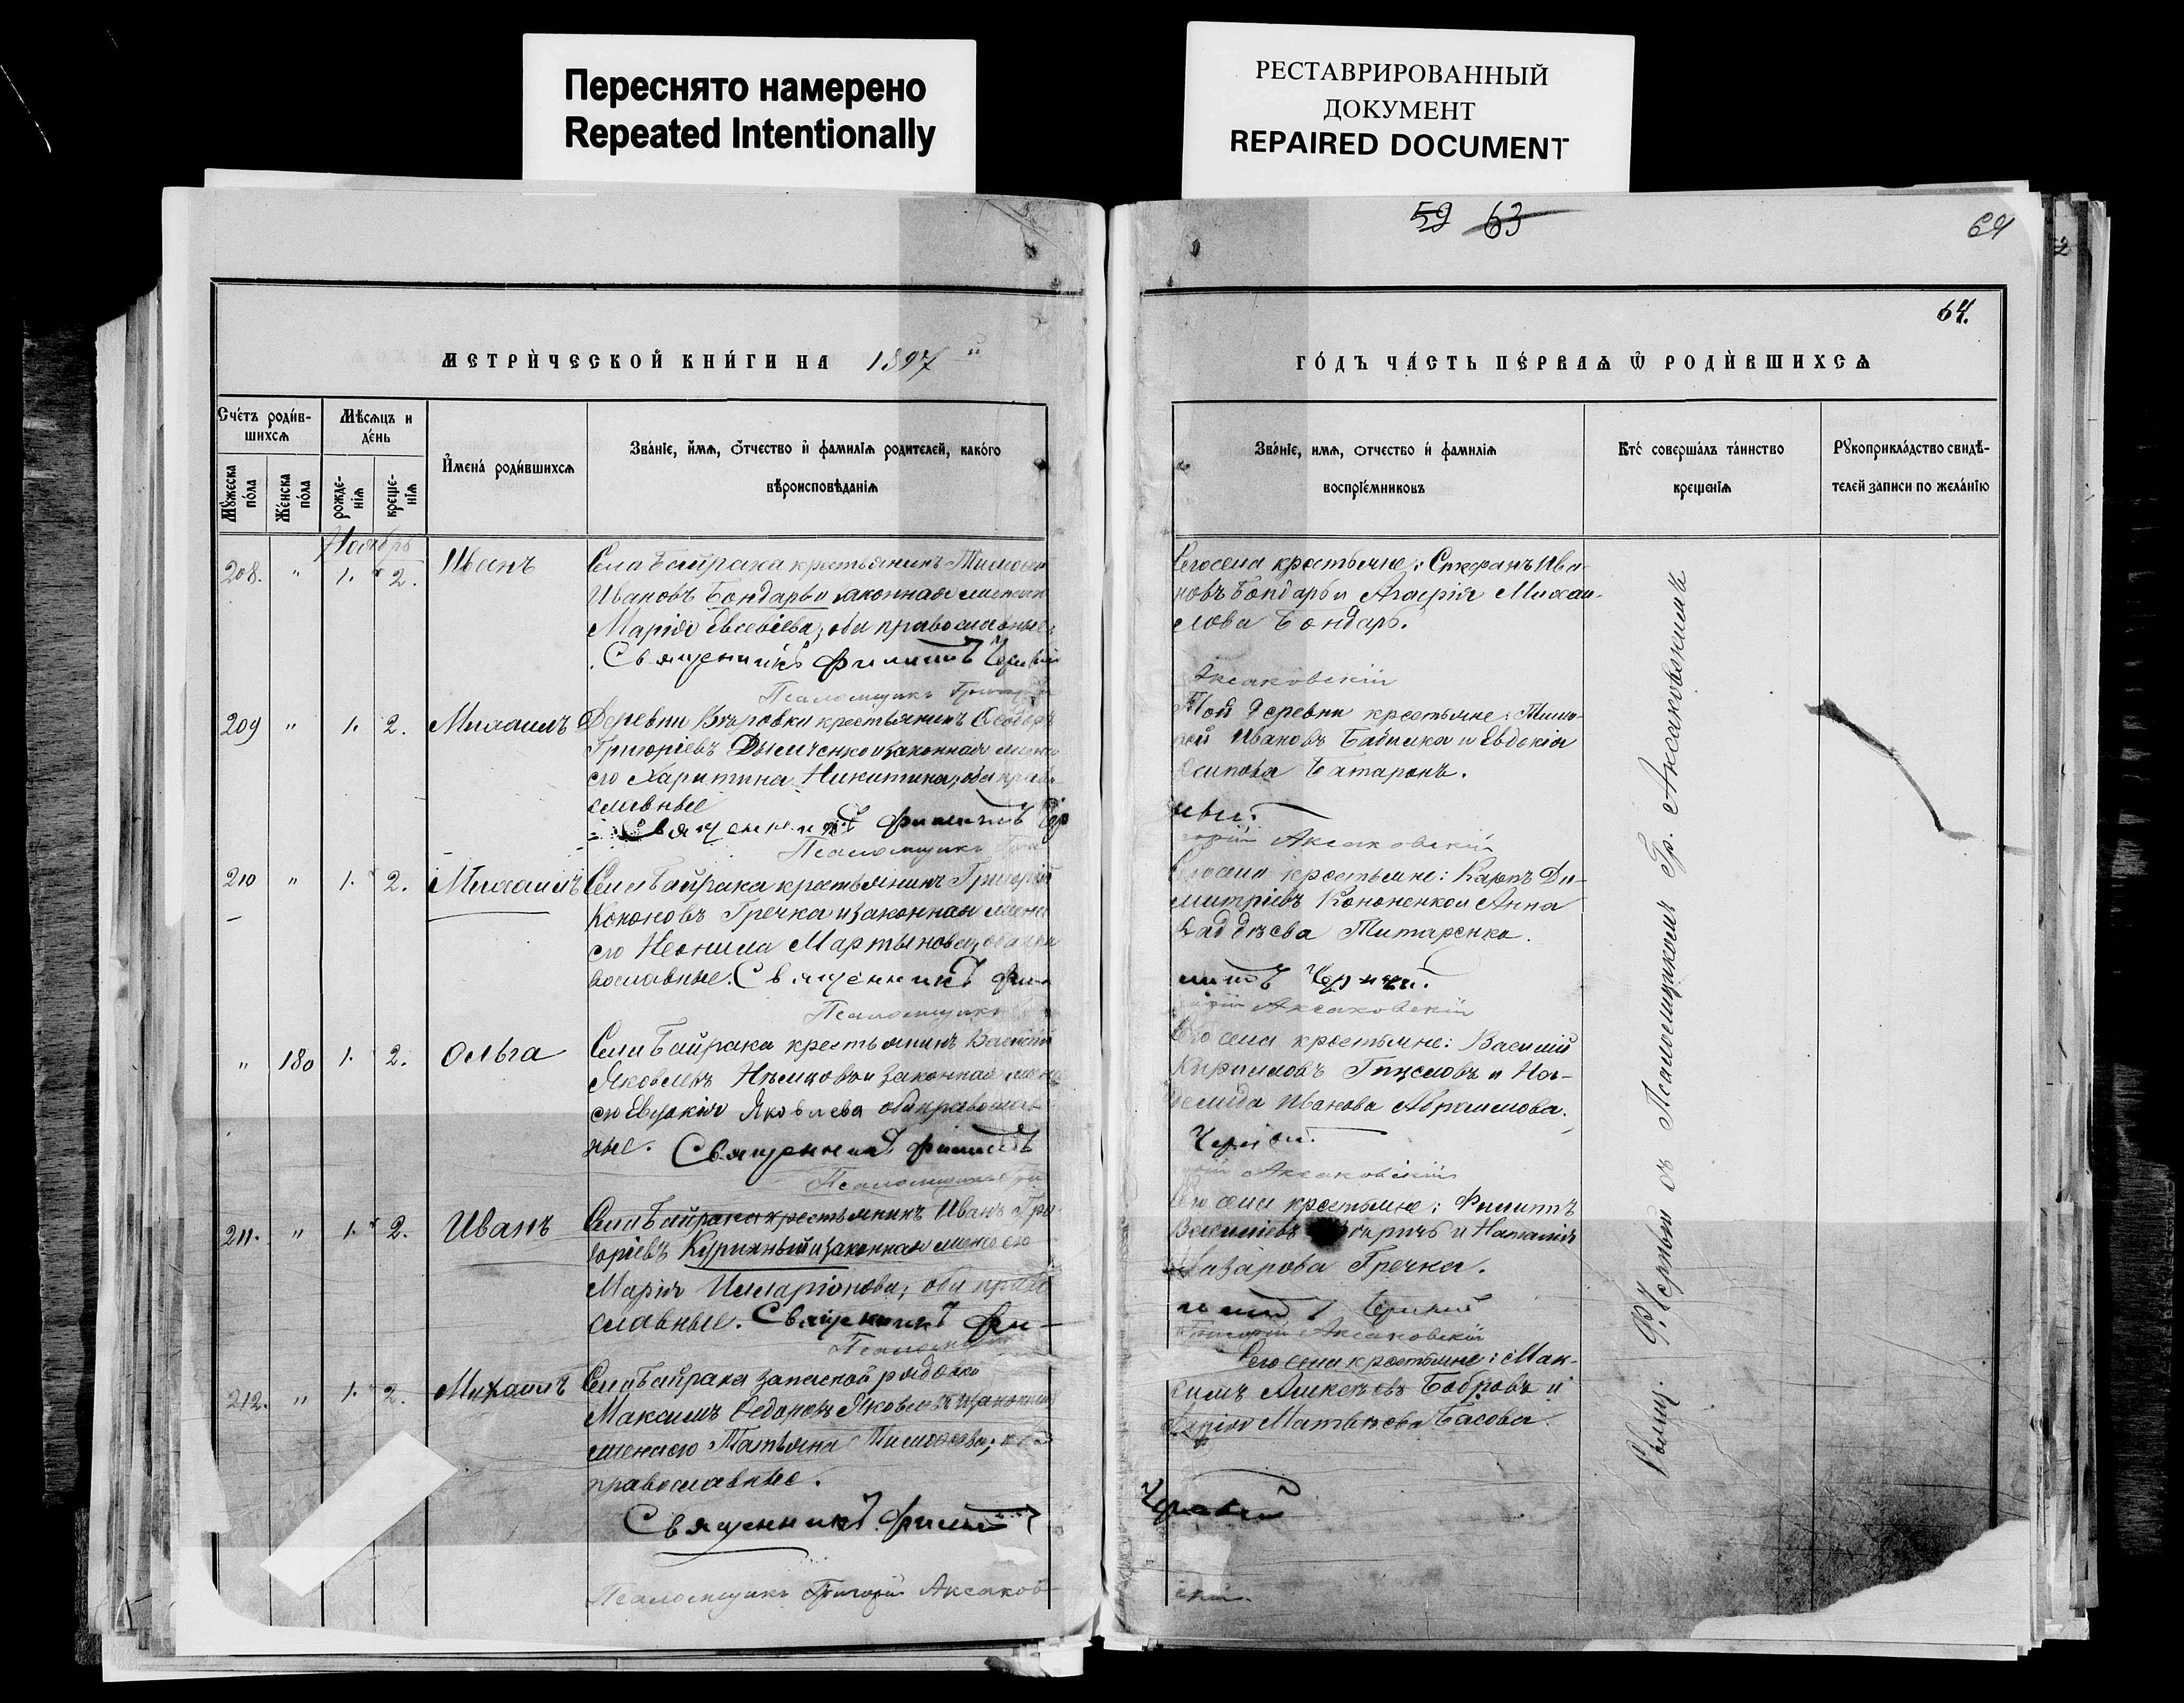 Переснято намерено
Repeated Intentionally
РЕСТАВРИРОВАННЫЙ
ДОКУМЕНТ
REPAIRED DOCUMENT
59 63
64
64.
МЕТРИ́ЧЕСКОЙ КНИ́ГИ НА 1897 й
ГО́ДЪ ЧА́СТЬ ПЕ́РВАѦ Ѡ РОДИ́ВШИХСѦ
Сче́тъ роди́в-
шихсѧ
Мѣ́сѧцъ и
де́нь
И҆мена̀ роди́вшихсѧ
Зва́нїе, и҆́мѧ, ѻ҆́тчество и҆ фами́лїѧ роди́телей, како́го
вѣроисповѣ́данїѧ
Му́жеска
по́ла
Же́нска
по́ла
рожде-
нїѧ
креще-
нїѧ
Зва́нїе, имѧ, ѻтчество и҆ фами́лїѧ
воспрїе́мниковъ
Кто́ соверша́лъ та́инство
креще́нїѧ
Рꙋкоприкла́дство свидѣ́-
телей за́писи по жела́нїю
Ноябрь
208. " 1. 2. Иванъ
Села Байрака крестьянинъ Тимофей
Ивановъ Бондарь и законная жена его
Марія Евсевіева; оба православные
Священникъ Филиппъ Черный
Псаломщикъ Григорій
Того села крестьяне: Стефанъ Ива-
новъ Бондарь и Агафія Михаи-
лова Бондарь.
Аксаковскій
209 " 1. 2. Михаилъ
Деревни крестьянинъ Ѳеодоръ
Григоріевъ Дымченко и законная жена
его Харитина Никитина; оба право
славные
Священникъ Филиппъ Чер
Псаломщикъ
Той деревни крестьяне:
Ивановъ и Евдокія
Осипова
ный.
Аксаковскій
210 " 1. 2. Михаилъ
Села Байрака крестьянинъ Григорій
Кононовъ Гречка и законная жена
его Неонила Мартынова; оба пра
вославные. Священникъ Фи-
Псаломщикъ
Того села крестьяне: Карпъ Ди-
митріевъ Кононенко и Анна
Ѳаддѣева Титаренко.
липпъ Черный.
Аксаковскій
" 180 1. 2. Ольга
Села Байрака крестьянинъ Василій
Яковлевъ Нѣмцовъ и законная жена
его Евдокія Яковлева оба православ
ные. Священникъ Филиппъ
Псаломщикъ Гри
Того села крестьяне: Василій
Кирилловъ и
Иванова Абрамова.
Черный.
Аксаковскій
211. " 1. 2. Иванъ
Села Байрака крестьянинъ Иванъ Гри
горіевъ Куринный и законная жена его
Марія Илларіонова; оба право
славные. Священникъ Фи-
Псаломщикъ
Того села крестьяне: Филиппъ
Василіевъ и Наталія
Назарова Гречка.
липпъ Черный
Григорій Аксаковскій
212. " 1. 2. Михаилъ
Села Байрака запасной рядовой
Максимъ Ѳедоровъ Яковлевъ и законная
жена его Татьяна Тимофеева;
православные.
Священникъ Филиппъ
Псаломщикъ Григорій Аксаков
Того села крестьяне: Мак-
симъ Алексѣевъ Бобровъ и
Дарія Матвѣева Басова.
Черный
скій.
Свящ. Ф. Черный съ Псаломщикомъ Гр. Аксаковскимъ